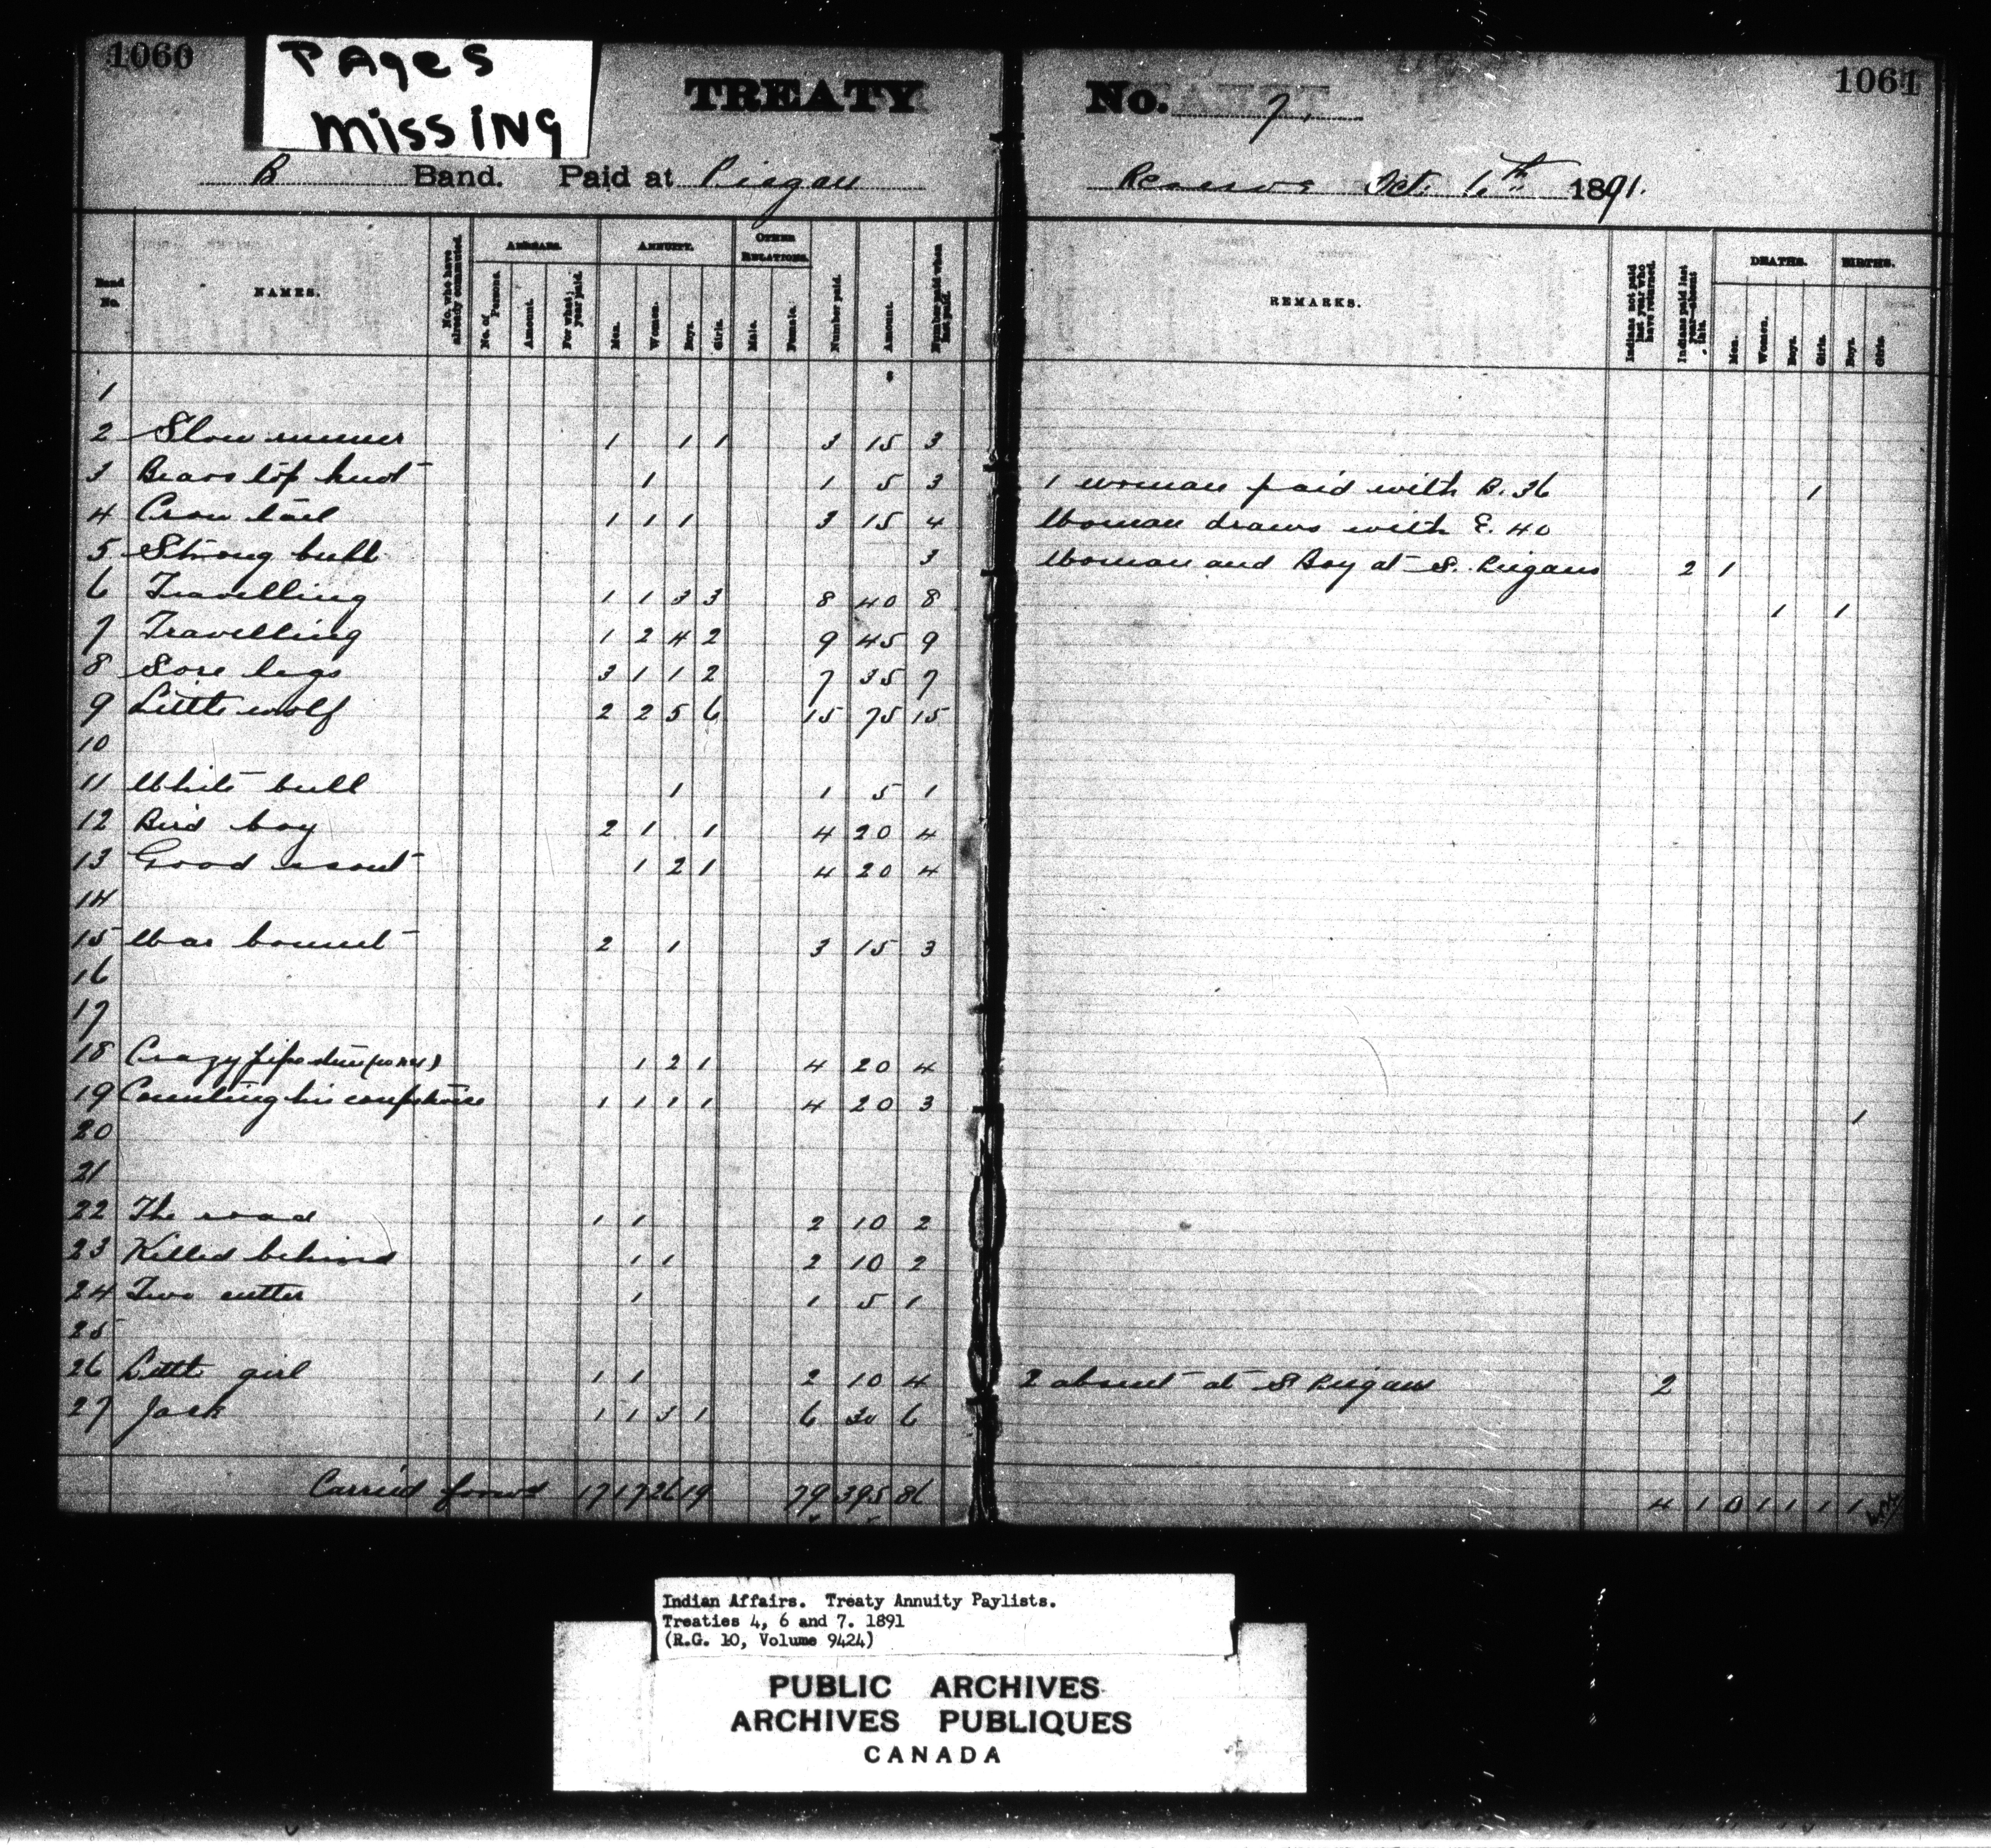 1060
PAges
missing
TREATY No. 7. 1061
B Band. Paid at Piegan Reserve Oct. 6th 1891.
Band No.
NAMES.
No. who have already commuted.
ARREARS.
No. of Persons.
Amount.
For what year paid.
ANNUITY.
Men.
Women.
Boys.
Girls.
OTHER RELATIONS.
Male.
Female.
Number paid.
Amount.
Number paid when last paid.
REMARKS.
Indians not paid last year who have returned.
Indians paid last year—absent this.
DEATHS.
Men.
Women.
Boys.
Girls.
BIRTHS.
Boys.
Girls.
1
2 Slow runner 1 1 1 3 15 3
3 Bears top knot 1 1 5 3 1 woman paid with B. 36 1
4 Crow tail 1 1 1 3 15 4 Woman draws with E. 40
5 Strong bull 3 Woman and Boy at S. Piegans 2 1
6 Travelling 1 1 3 3 8 40 8 1 1
7 Travelling 1 2 4 2 9 45 9
8 Sore legs 3 1 1 2 7 35 7
9 Little wolf 2 2 5 6 15 75 15
10
11 White bull 1 1 5 1
12 Bird boy 2 1 1 4 20 4
13 Good scout 1 2 1 4 20 4
14
15 War bonnet 2 1 3 15 3
16
17
18 Crazy pipe stem 1 2 1 4 20 4
19 Counting his coups twice 1 1 1 1 4 20 3 1
20
21
22 The road 1 1 2 10 2
23 Killed behind 1 1 2 10 2
24 Two cutter 1 1 5 1
25
26 Little girl 1 1 2 10 4 2 absent at S Piegans 2
27 Jack 1 1 3 1 6 30 6
Carried forwd 17 17 26 19 79 395 86 4 1 0 1 1 1 1
Indian Affairs. Treaty Annuity Paylists.
Treaties 4, 6 and 7. 1891
(R.G. 10, Volume 9424)
PUBLIC ARCHIVES
ARCHIVES PUBLIQUES
CANADA